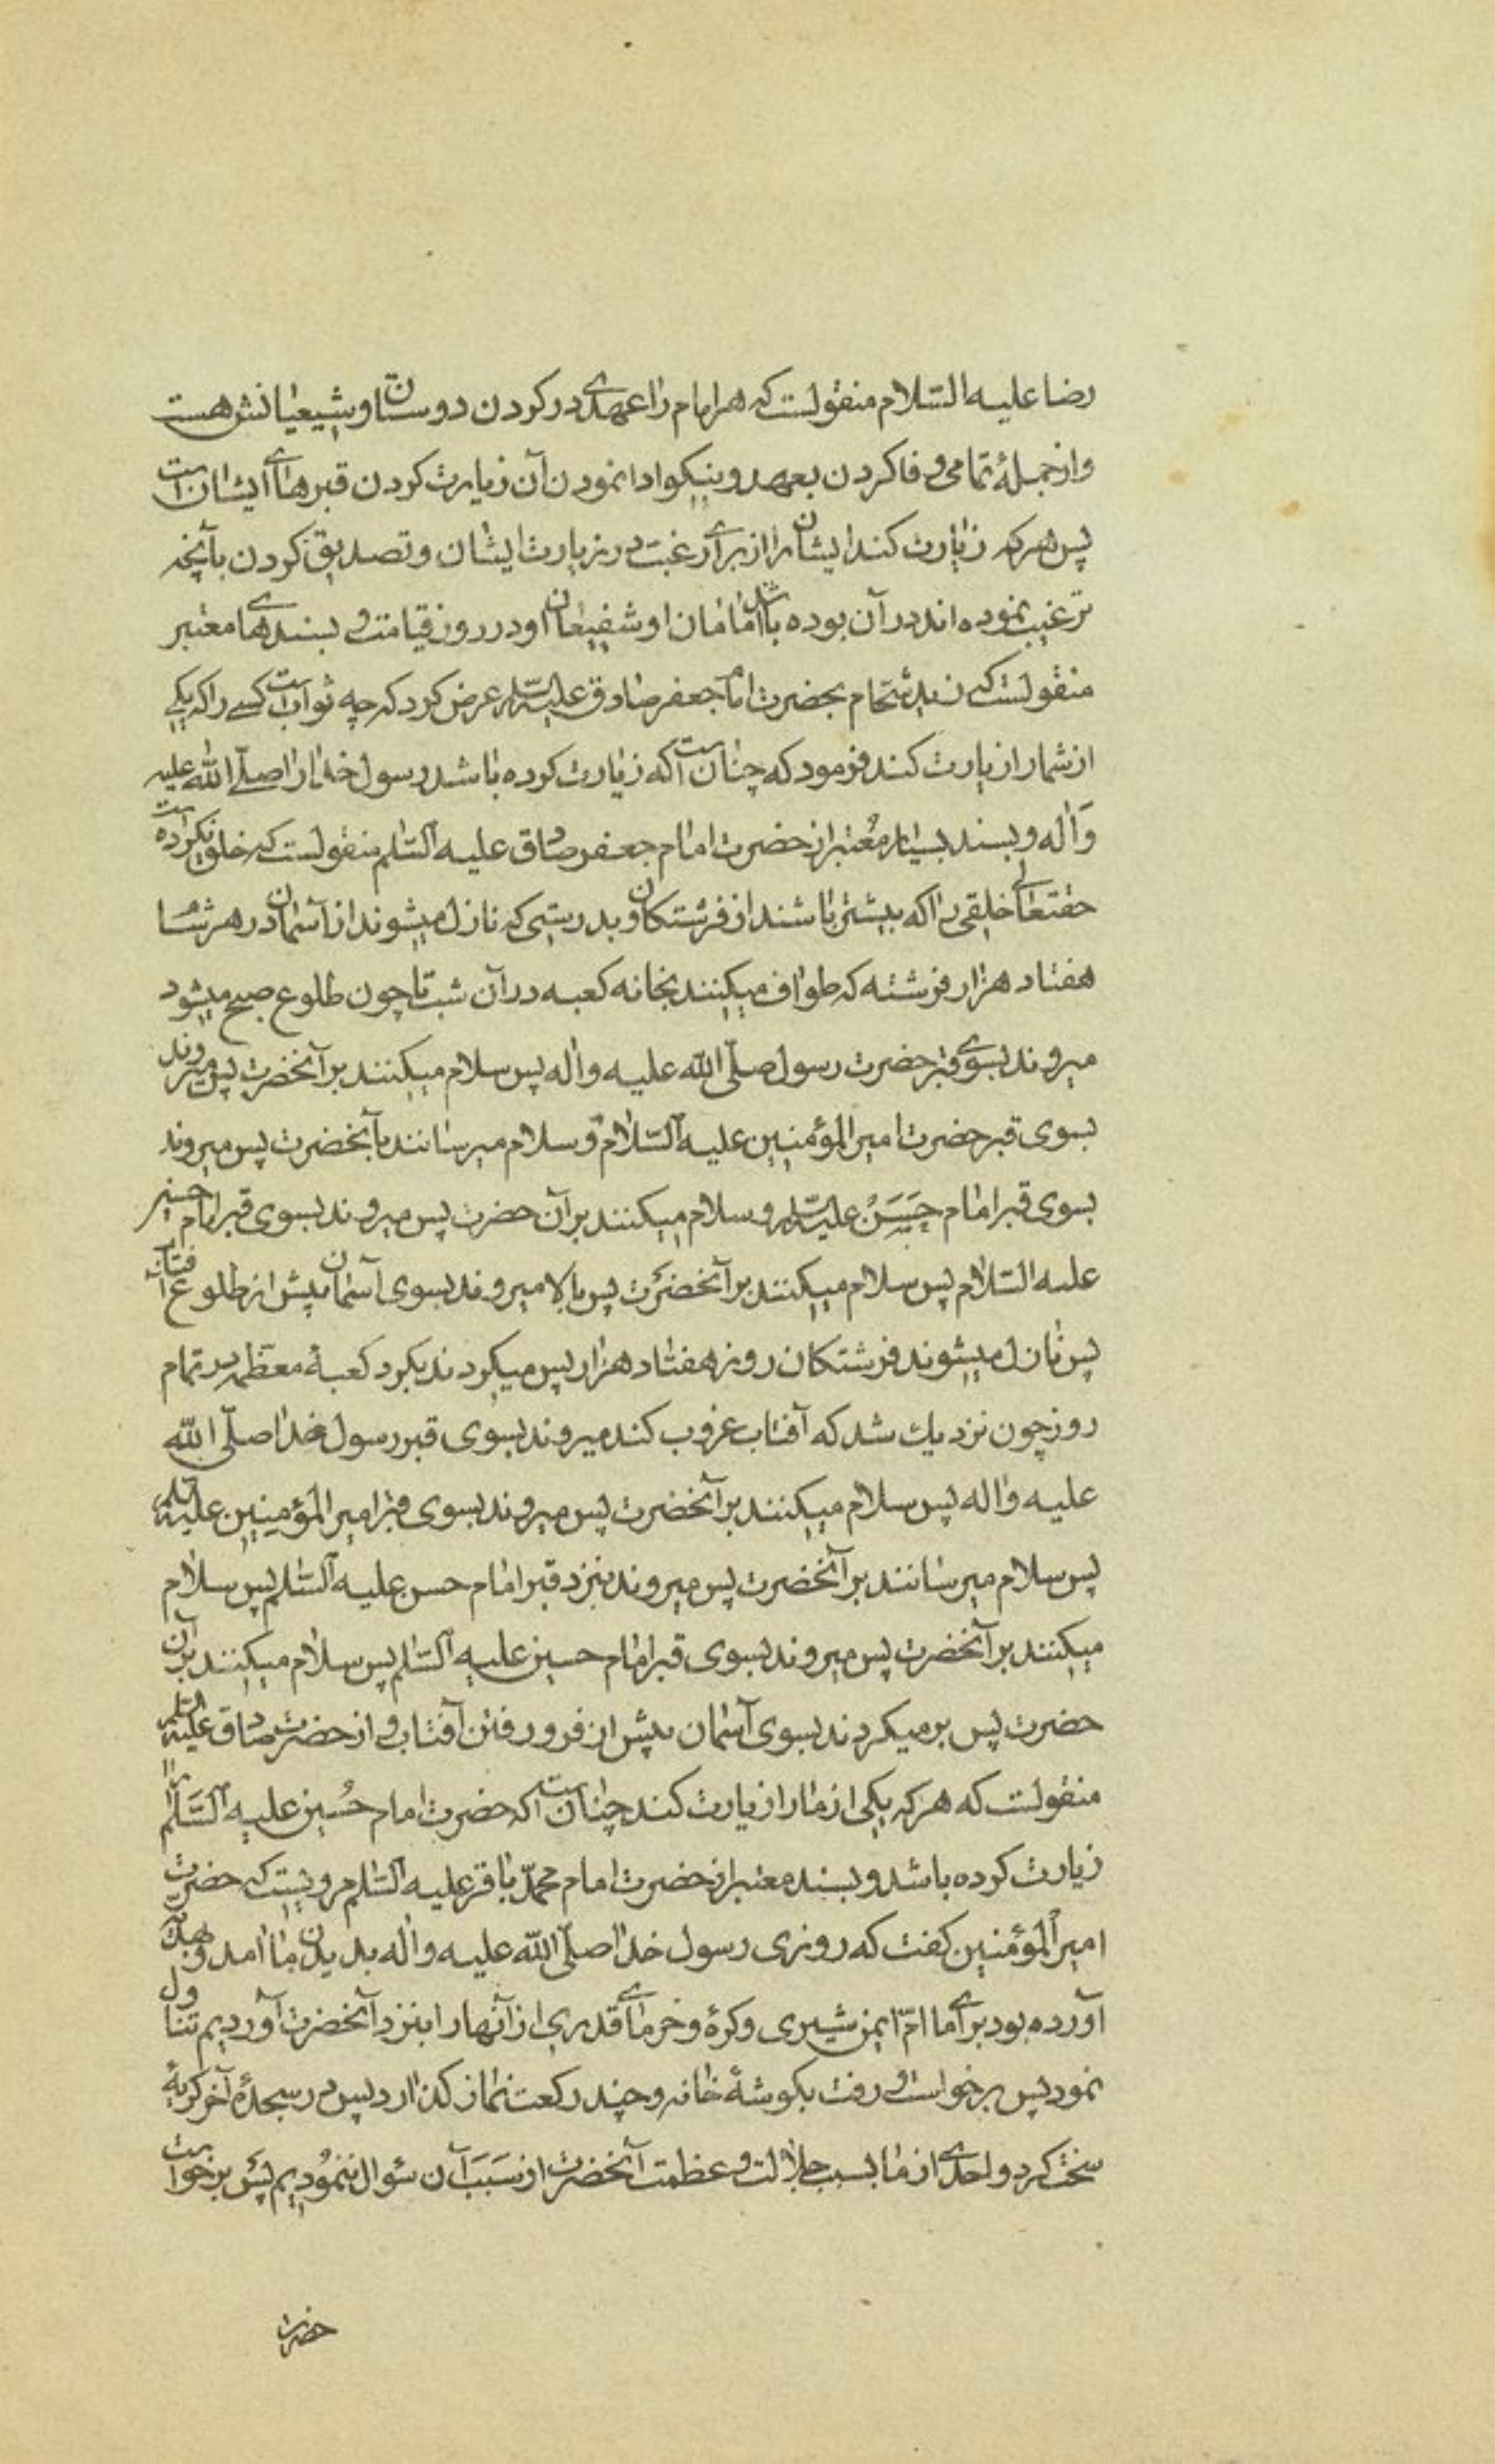 رضا علیه السّلام منقولست که هر امام را عهدی در کردن دوستان او و شیعیانش هست
و از جملهٔ تمامی وفا کردن بعهد و نیکو ادا نمودن آن زیارت کردن قبرهای ایشان است
پس هر که زیارت کند ایشان را از برای رغبت در زیارت ایشان و تصدیق کردن بآنچه
ترغیب نموده اند در آن بوده باشد امامان او شفیعان او در روز قیامت و بسندهای معتبر
منقولست که زید شحّام بحضرت امام جعفر صادق علیه السلم عرض کرد که چه ثواب است کسی را که یکی
از شما را زیارت کند فرمود که چنان است که زیارت کرده باشد رسول خدا را صلّی الله علیه
وَاله و بسند بسیار معُتبر از حضرت امام جعفر صادق علیه السّلم منقولست که خلق نکرده است
حقتعالی خلقی را که بیشتر باشند از فرشتکان و بدرستی که نازل میشوند از آسمان در هر شام
هفتاد هزار فرشته که طواف میکنند بخانه کعبه در آن شب تا چون طلوع صبح میشود
میروند بسوی قبر حضرت رسول صلّی الله علیه واله پس سلام میکنند بر آنحضرت پس میروند
بسوی قبر حضرت امیر المؤمنین علیه السّلام و سلام میرسانند بآنحضرت پس میروند
بسوی قبر امام حَسَنْ علیه السلم و سلام میکنند بر آن حضرت پس میروند بسوی قبر امام حسین
علیه السّلام پس سلام میکنند بر آنحضرَت پس بالا میروند بسوی آسمان پیش از طلوع آفتاب
پس نازل میشوند فرشتکان روز هفتاد هزار پس میکردند بکرد کعبهٔ معظّمه در تمام
روز چون نزدیك شد که آفتاب غروب کند میروند بسوی قبر رسول خدا صلّی الله
علیه واله پس سلام میکنند بر آنحضرت پس میروند بسوی قبر امیر المَؤمنِین علیه السلم
پس سلام میرسانند بر آنحضرت پس میروند بنزد قبر امام حسن علیه السّلم پس سلام
میکنند بر آنحضرت پس میروند بسوی قبر امام حسین علیه السّلم پس سلام میکنند بر آن
حضرت پس بر میکردند بسوی آسمان پیش از فرو رفتن آفتاب و از حضرت صادق علیه السلم
منقولست که هر که یکی از ما را زیارت کند چنان است که حضرت امام حُسین علیه السَّلم را
زیارت کرده باشد و بسند معتبر از حضرت امام محمّد باقر علیه السّلم مرویست که حضرت
امیر المؤمنین کفت که روزی رسول خدا صلّی الله علیه واله بدیدن ما امد و هدیه
آورده بود برای ما امّ ایمن شیری و کرهٔ و خرمای قدری از آنها را بنزد آنحضرت آوردیم تناول
نمود پس برخواست و رفت بکوشهٔ خانه و چند رکعت نماز کذارد پس در سجدهٔ آخر کریهٔ
سخت کرد و احدی از ما بسبب جلالت و عظمت آنحضرت از سَبَبَ آن سؤال ننموُدیم پَس برخواست
حضرت